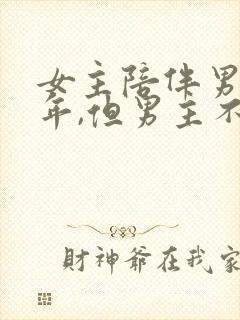 女主陪伴男
年,但男主不
财神爷在我家